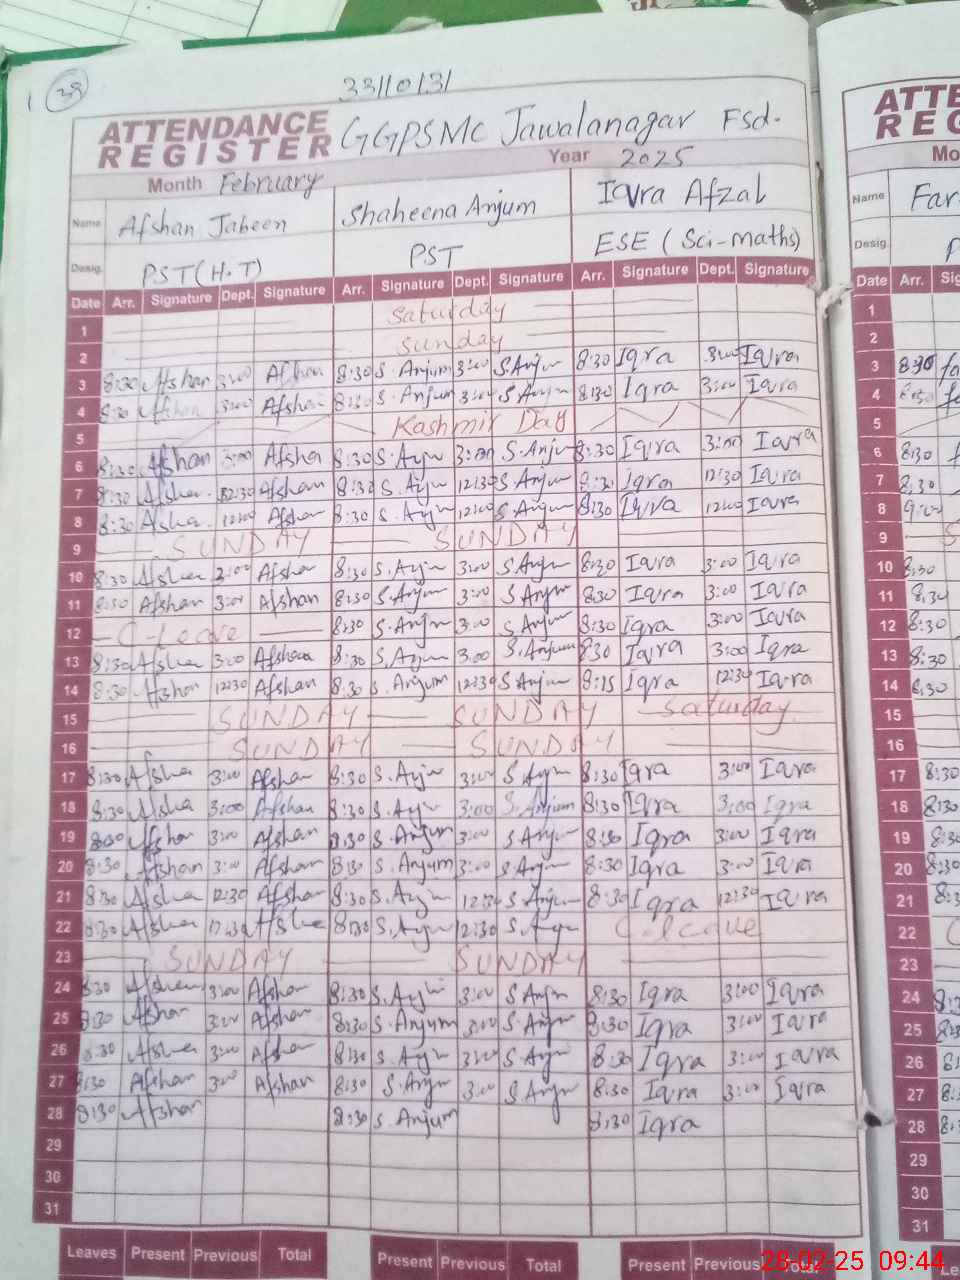 38
33110131
ATTENDANCE REGISTER GGPSMC Jawalanagar Fsd.
Month February Year 2025
Name Afshan Jabeen Shaheena Anjum Iqra Afzal
Desig. PST (H.T) PST ESE (Sci-maths)
Date Arr. Signature Dept. Signature Arr. Signature Dept. Signature Arr. Signature Dept. Signature
1 Saturday
2 Sunday
3 8:30 Afshan 3:00 Afshan 8:30 S. Anjum 3:00 S Anjum 8:30 Iqra 3:00 Iqra
4 8:30 Afshan 3:00 Afshan 8:30 S. Anjum 3:00 S Anjum 8:30 Iqra 3:00 Iqra
5 Kashmir Day
6 8:30 Afshan 3:00 Afshan 8:30 S. Anjum 3:00 S. Anjum 8:30 Iqra 3:00 Iqra
7 8:30 Afshan 12:30 Afshan 8:30 S. Anjum 12:30 S Anjum 8:30 Iqra 12:30 Iqra
8 8:30 Afshan 12:00 Afshan 8:30 S. Anjum 12:00 S. Anjum 8:30 Iqra 12:00 Iqra
9 SUNDAY SUNDAY
10 8:30 Afshan 3:00 Afshan 8:30 S. Anjum 3:00 S Anjum 8:30 Iqra 3:00 Iqra
11 8:30 Afshan 3:00 Afshan 8:30 S. Anjum 3:00 S Anjum 8:30 Iqra 3:00 Iqra
12 C-leave 8:30 S. Anjum 3:00 S Anjum 8:30 Iqra 3:00 Iqra
13 8:30 Afshan 3:00 Afshan 8:30 S. Anjum 3:00 S. Anjum 8:30 Iqra 3:00 Iqra
14 8:30 Afshan 12:30 Afshan 8:30 S. Anjum 12:30 S Anjum 8:15 Iqra 12:30 Iqra
15 SUNDAY SUNDAY Saturday
16 SUNDAY SUNDAY
17 8:30 Afshan 3:00 Afshan 8:30 S. Anjum 3:00 S Anjum 8:30 Iqra 3:00 Iqra
18 8:30 Afshan 3:00 Afshan 8:30 S. Anjum 3:00 S. Anjum 8:30 Iqra 3:00 Iqra
19 8:30 Afshan 3:00 Afshan 8:30 S. Anjum 3:00 S Anjum 8:30 Iqra 3:00 Iqra
20 8:30 Afshan 3:00 Afshan 8:30 S. Anjum 3:00 S Anjum 8:30 Iqra 3:00 Iqra
21 8:30 Afshan 12:30 Afshan 8:30 S. Anjum 12:30 S Anjum 8:30 Iqra 12:30 Iqra
22 8:30 Afshan 12:30 Afshan 8:30 S. Anjum 12:30 S. Anjum C-leave
23 SUNDAY SUNDAY
24 8:30 Afshan 3:00 Afshan 8:30 S. Anjum 3:00 S Anjum 8:30 Iqra 3:00 Iqra
25 8:30 Afshan 3:00 Afshan 8:30 S. Anjum 3:00 S. Anjum 8:30 Iqra 3:00 Iqra
26 8:30 Afshan 3:00 Afshan 8:30 S. Anjum 3:00 S. Anjum 8:30 Iqra 3:00 Iqra
27 8:30 Afshan 3:00 Afshan 8:30 S. Anjum 3:00 S Anjum 8:30 Iqra 3:00 Iqra
28 8:30 Afshan 8:30 S. Anjum 8:30 Iqra
29
30
31
Leaves Present Previous Total Present Previous Total Present Previous
Name
Desig.
Date Arr.
1
2
3 8:30
4 8:30
5
6 8:30
7 8:30
8 9:00
9
10 8:30
11 8:30
12 8:30
13 8:30
14 8:30
15
16
17 8:30
18 8:30
19
20 8:30
21
22
23
24
25
26
27
28
29
30
31
28-02-25 09:44